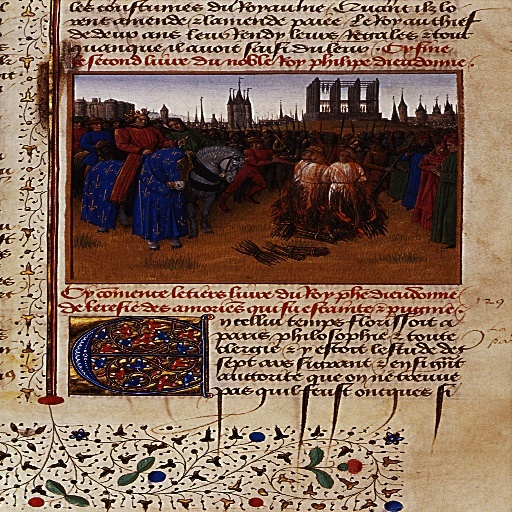 les coustumes du Royaume. Quant ilz lo
rent amende & lamende paiee. Le Roy au chief
de deux ans leur rendy leurs Regales & tout
quanque il avoit saisi du leur. Cy fine
le second livre du noble Roy phelippe dieudonne.
Cy comence le tiers livre du Roy phe dieudonne
de leresie des amories qui fu estainte & pugnie.
En celluy temps florissoit a
paris philosophie & toute
clergie & y estoit lestude des
sept ars si grant & en si grāt
autorite que on ne treuve
pas quil feust oncques si
129